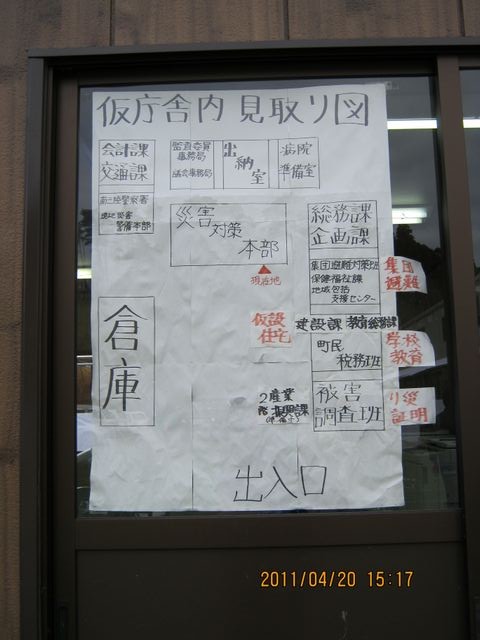 仮庁舎内 見取り図
会計課
交通課
監査委員
事務局
議会事務局
出
納
室
病院
準備室
南三陸警察署
現地災害
警備本部
災害
対策
本部
現在地
総務課
企画課
集団避難対策班
保健福祉課
地域包括
支援センター
集団
避難
仮設
住宅
建設課 教育総務課
学校
教育
町民
税務班
倉
庫
2産業
階 振興課
被害
調査班
り災
証明
出入口
2011/04/20 15:17